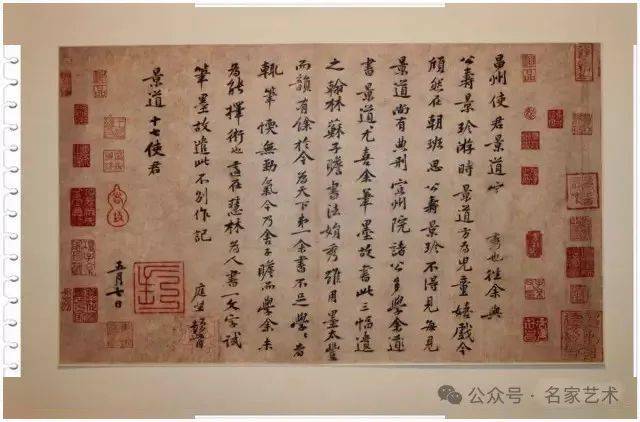 昌州使君景道宗秀也往余與
公壽景珍游時景道方為兒童嬉戲今
頎然在朝班思公壽景珍不得見每見
景道尚有典刑宣州院諸公多學余
書景道尤喜余筆墨故書此三幅遺
之翰林蘇子瞻書法娟秀雖用墨太豐
而韻有餘於今為天下第一余書不足學學者
輒筆愞無勁氣今乃舍子瞻而學余未
為能擇術也適在慧林為人書一文字試
筆墨故遣此不別作記
庭堅頓首
景道十七使君
五月七日
公众号·名家艺术